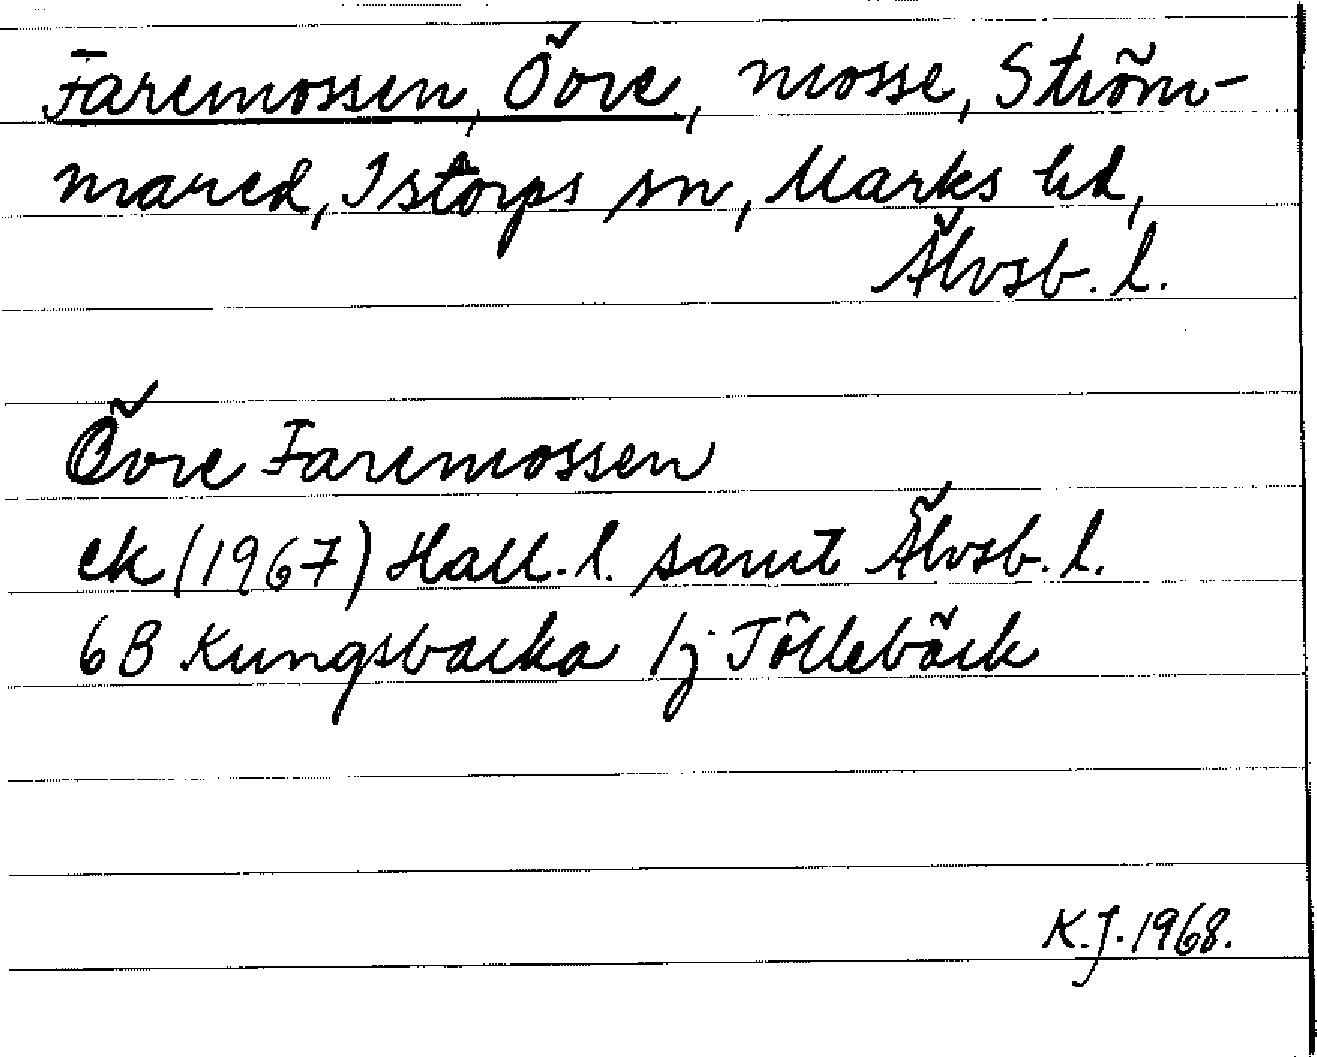 Faremossen, Övre, mosse, Ström-
mared, Istorps sn, Marks hd,
Älvsb. l.
Övre Faremossen
ek (1967) Hall. l. samt Älvsb. l.
6B Kungsbacka 1j Töllebäck
K.J. 1968.